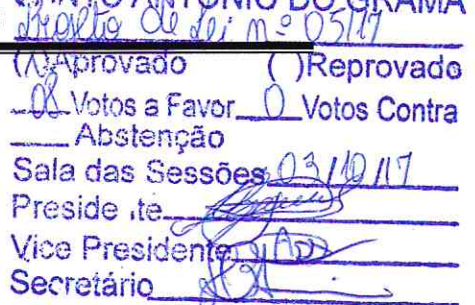 ANTONIO DO GRAMA
Projeto de Lei nº 05/17
(X)Aprovado ( )Reprovado
08 Votos a Favor 0 Votos Contra
Abstenção
Sala das Sessões 03/10/17
Preside .te
Vice Presidente
Secretário